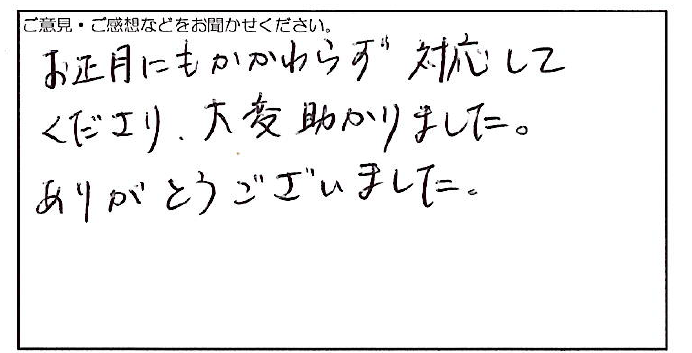 ご意見・ご感想などをお聞かせください。
お正月にもかかわらず 対応して
くださり、大変助かりました。
ありがとうございました。